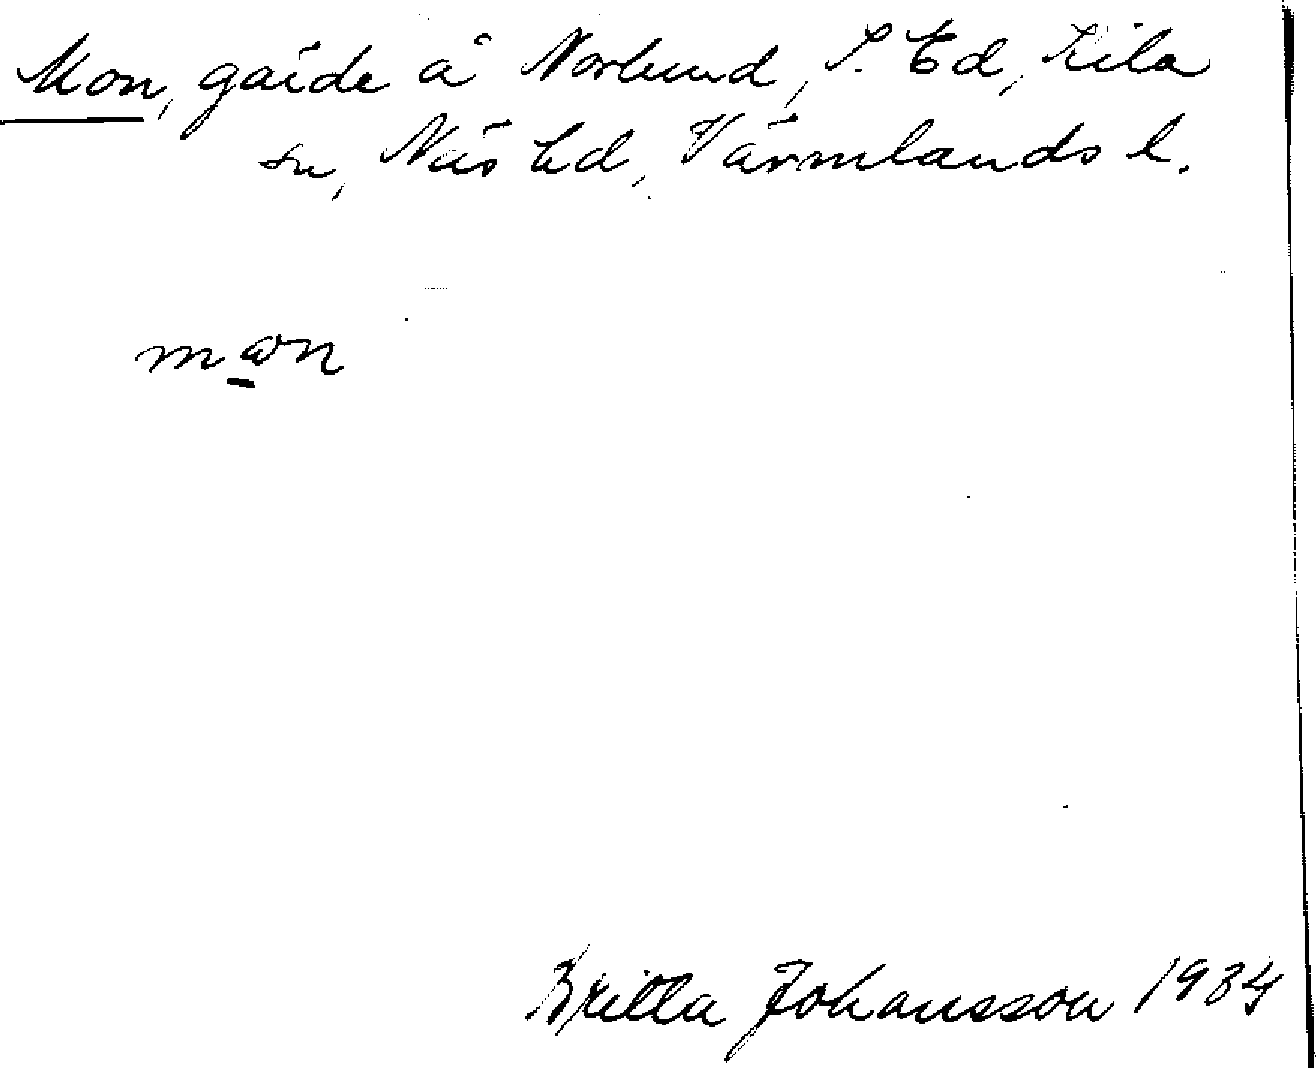 Mon, gärde å Norlund, S. Ed, Kila
sn, Näs hd, Värmlands l.
mωn
Britta Johansson 1934